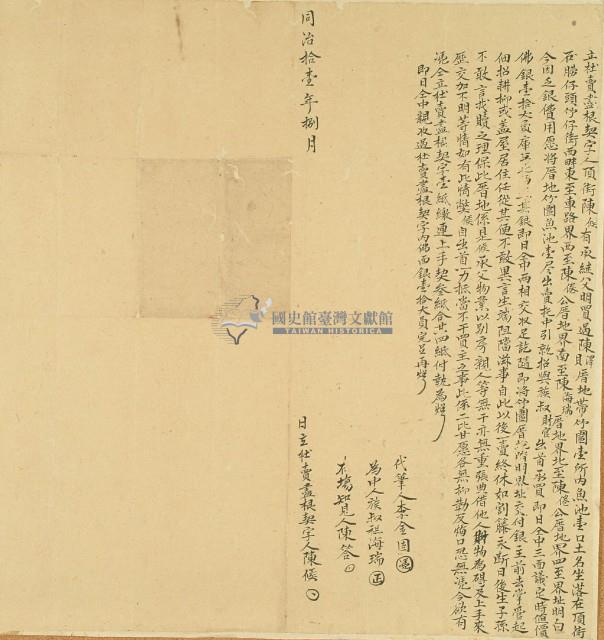 立杜賣盡根契字人頂街陳候有承繼父明買過陳貝澤厝地帶竹圍壹所內魚池壹口土名坐落在頂街
石膀仔頭竹仔街西畔東至車路界西至陳候公厝地界南至陳海瑞厝地界北至陳候公厝地界四至界址明白
今因乏銀費用愿將厝地竹圍魚池壹尽出賣托中引就招與族叔財官出首承買即日仝中三面議定時值價
佛銀壹拾大員庫 其銀即日仝中兩相交收足訖隨即將竹圍厝地踏明界址交付銀主前去掌管起
佃招耕抑或盖屋居住任從其便不敢異言生端阻擋滋事自此以後一賣終休如割藤永断日後生子孫
不敢言找贖之理保此厝地係是候承父物業以別房親人等無干亦無重張典借他人財物為碍及上手來
歷交加不明等情如有此情弊候自出首一力抵當不干買主之事此係二比甘愿各無抑勒反悔口恐無凴今欲有
凴仝立杜賣盡根契字壹紙繳連上手契叁紙合共四紙付執為照
即日仝中親收過杜賣盡根契字內佛面銀壹拾大員完足再照
代筆人李金固
為中人族叔祖海瑞
在場知見人陳答
同治拾壹年捌月
日立杜賣盡根契字人陳候
國史館臺灣文獻館
TAIWAN HISTORICA